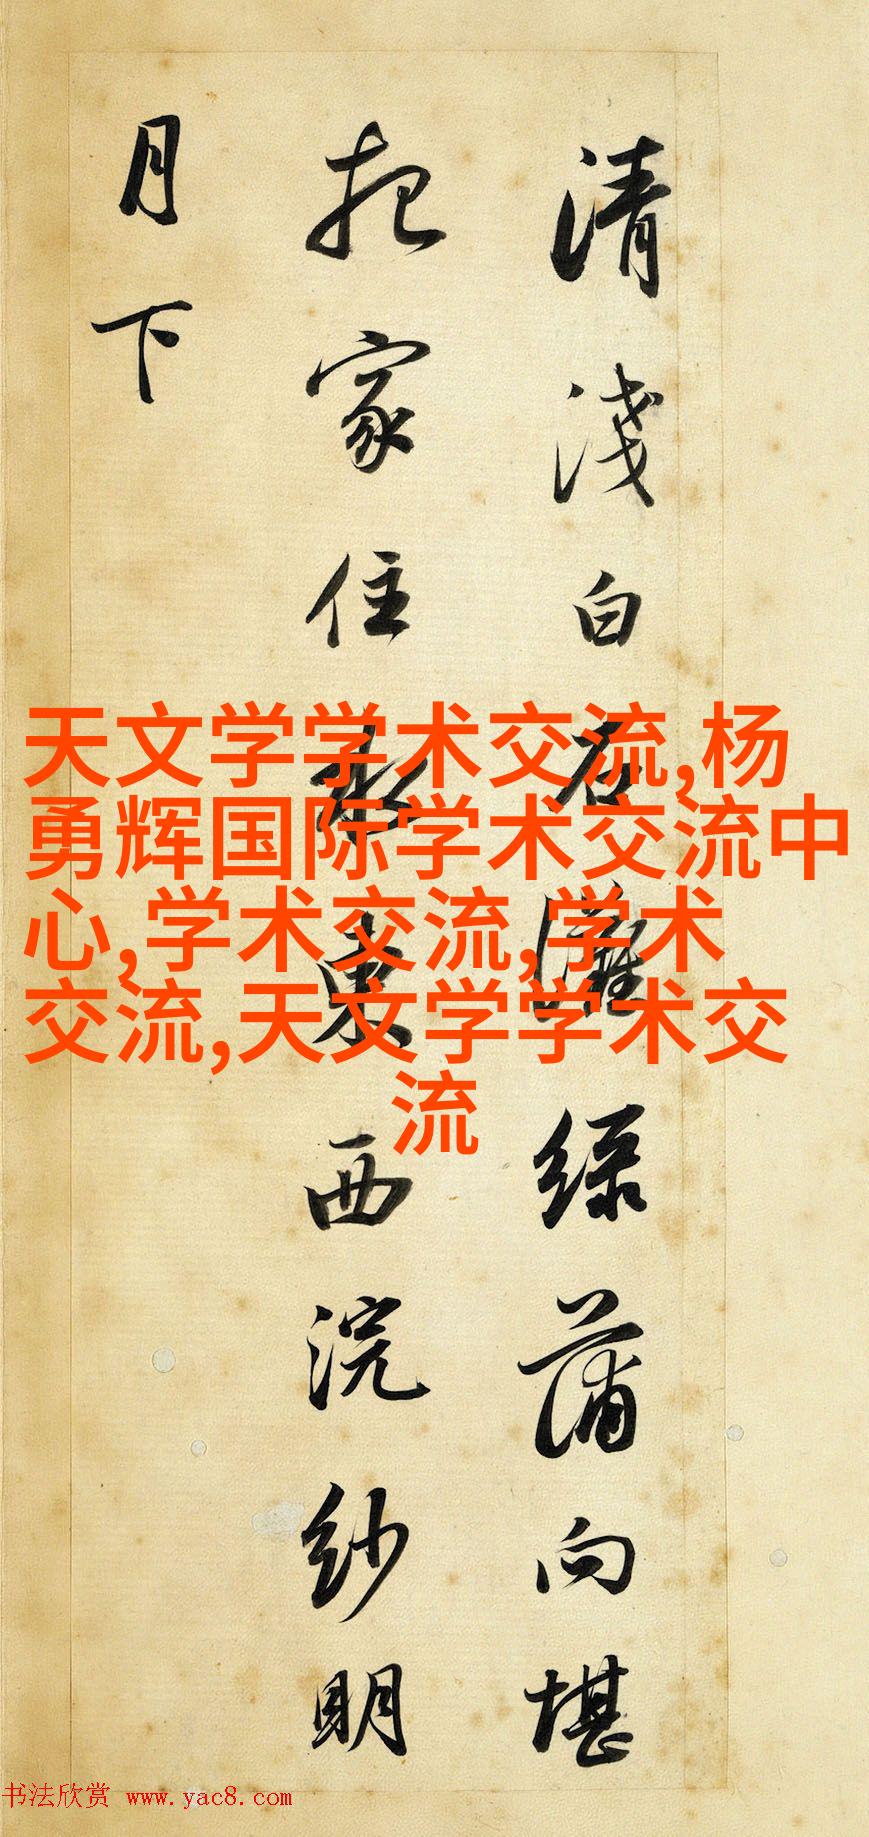 清淺白石灘綠蒲向堪
把家住水東西浣紗明
月下
天文学学术交流,杨
勇辉国际学术交流中
心,学术交流,学术
交流,天文学学术交
流
书法欣赏 www.yac8.com